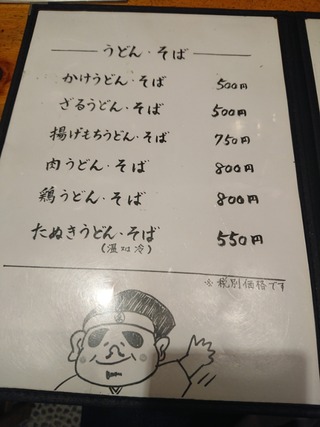 うどん・そば
かけうどん・そば 500円
ざるうどん・そば 500円
揚げもちうどん・そば 750円
肉うどん・そば 800円
鶏うどん・そば 800円
たぬきうどん・そば 550円
(温or冷)
※税別価格です